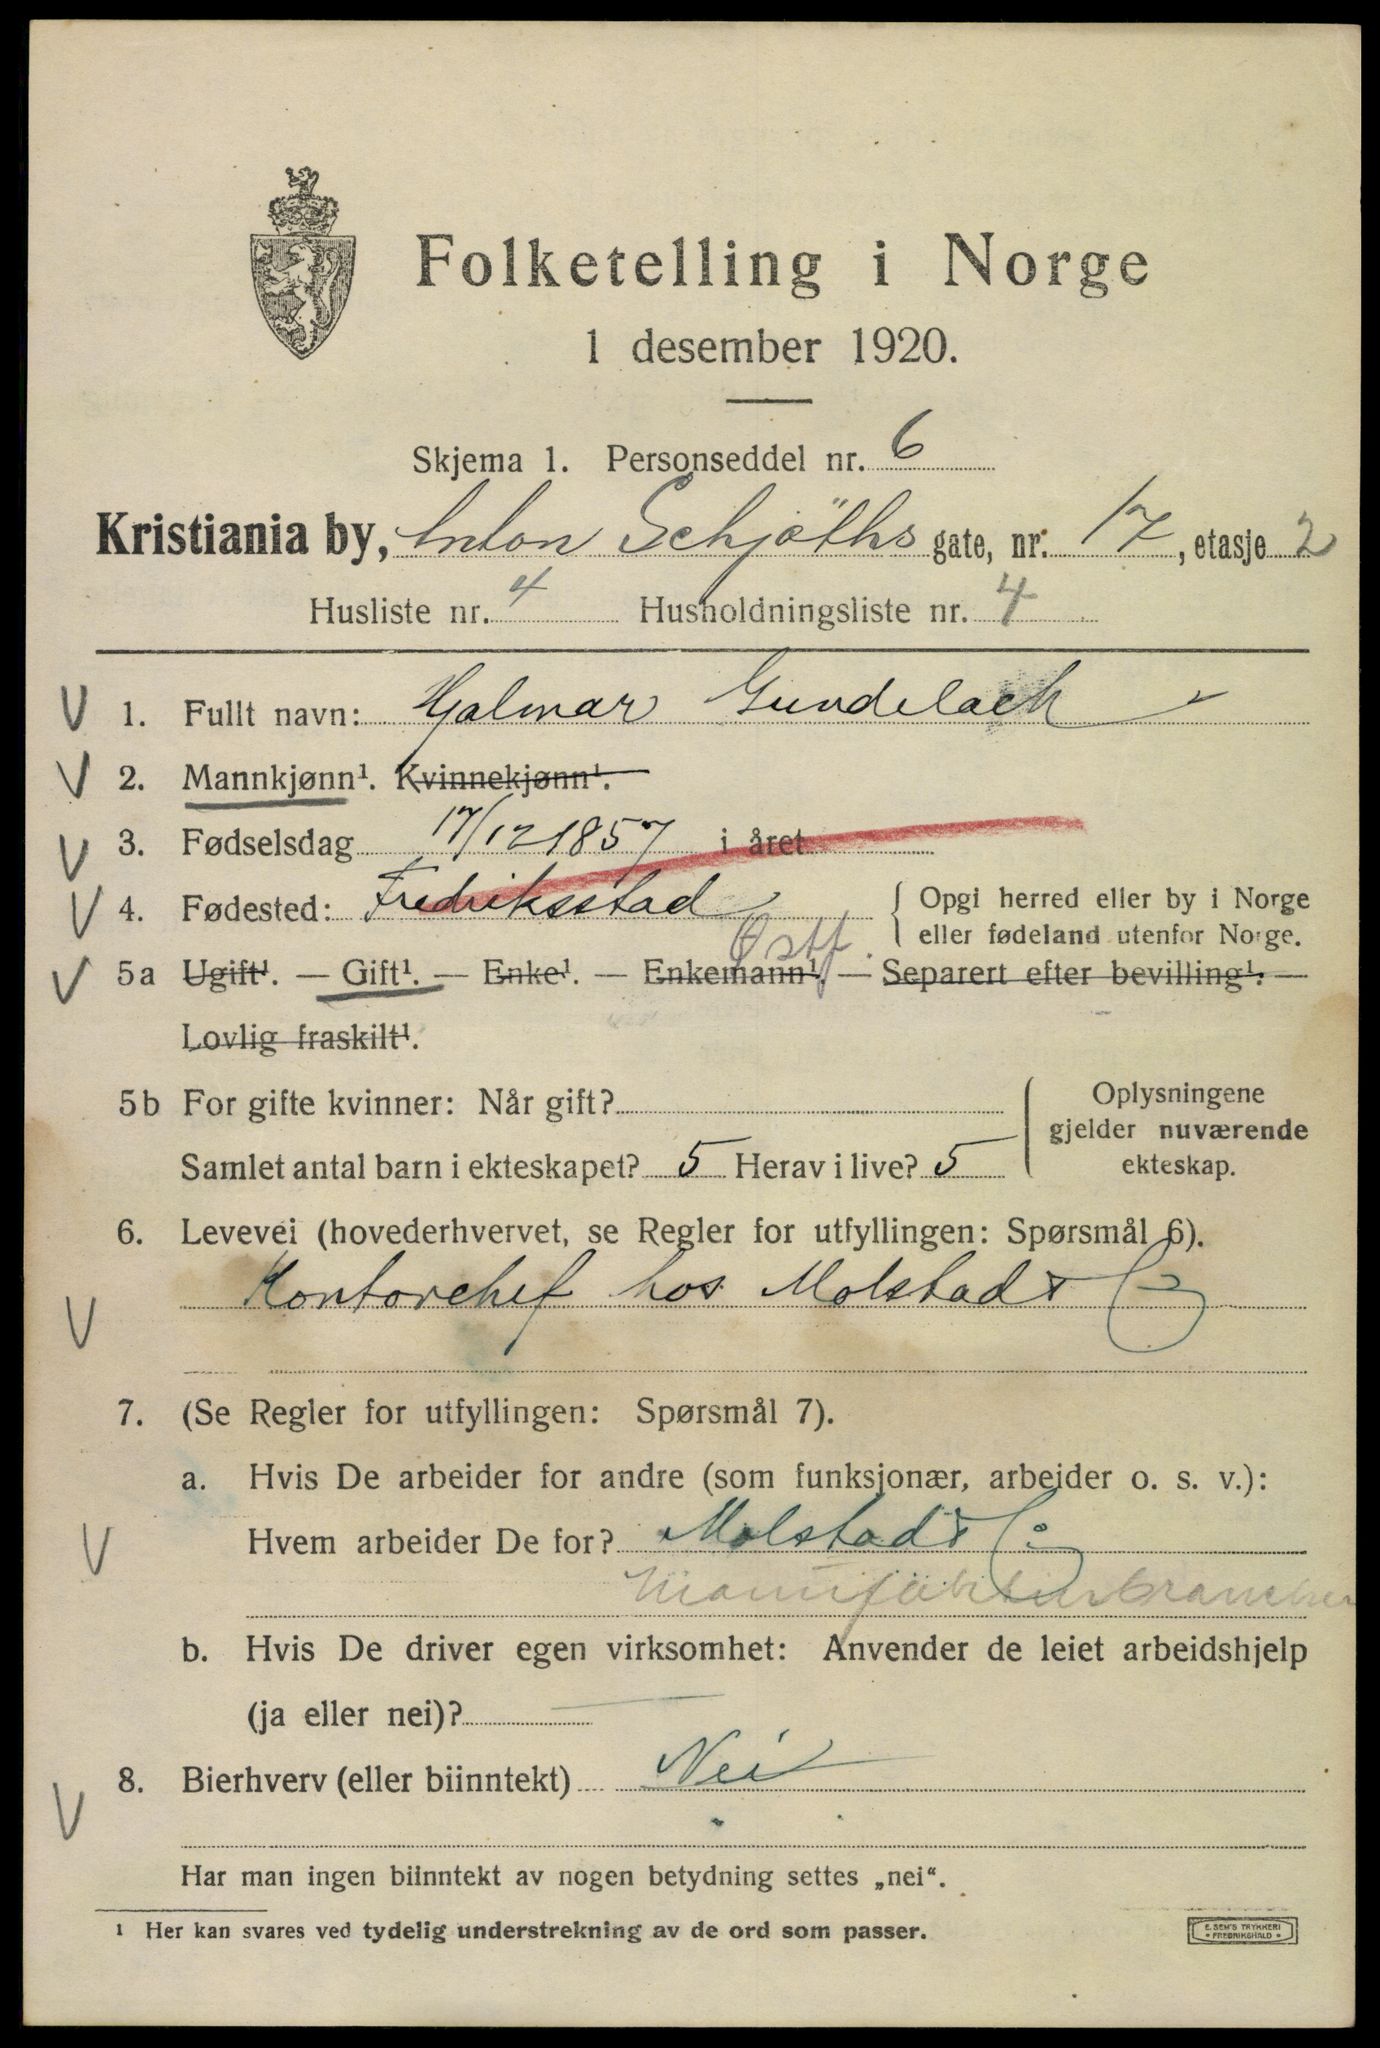 Folketelling i Norge
1 desember 1920.
Skjema 1. Personseddel nr. 6
Kristiania by, Anton Schjøths gate, nr. 17, etasje 2
Husliste nr. 4 Husholdningsliste nr. 4
V 1. Fullt navn: Hjalmar Gundelach
V 2. Mannkjønn¹. Kvinnekjønn¹.
V 3. Fødselsdag 17/12 1857 i året
V 4. Fødested: Fredriksstad { Opgi herred eller by i Norge
eller fødeland utenfor Norge.
Østf.
V 5a Ugift¹. — Gift¹. — Enke¹. — Enkemann¹. — Separert efter bevilling¹. —
Lovlig fraskilt¹.
5b For gifte kvinner: Når gift? { Oplysningene
gjelder nuværende
Samlet antal barn i ekteskapet? 5 Herav i live? 5 ekteskap.
6. Levevei (hovederhvervet, se Regler for utfyllingen: Spørsmål 6).
V Kontorchef hos Molstad & Co
7. (Se Regler for utfyllingen: Spørsmål 7).
a. Hvis De arbeider for andre (som funksjonær, arbeider o. s. v.):
V Hvem arbeider De for? Molstad & Co
Manufakturbranchen
b. Hvis De driver egen virksomhet: Anvender de leiet arbeidshjelp
(ja eller nei)? —
V 8. Bierhverv (eller biinntekt) Nei
Har man ingen biinntekt av nogen betydning settes „nei“.
¹ Her kan svares ved tydelig understrekning av de ord som passer.
E. SEM'S TRYKKERI
• FREDRIKSHALD •